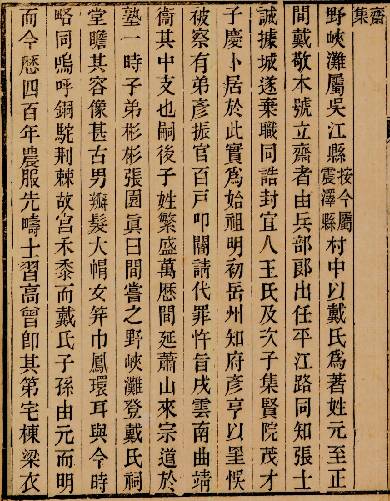 齋集
野峽灘屬吳江縣按今屬震澤縣村中以戴氏爲著姓元至正
間戴敬本號立齋者由兵部郎出任平江路同知張士
誠據城遂棄職同誥封宜人王氏及次子集賢院茂才
子慶卜居於此實爲始祖明初岳州知府彥亨以里悞
被察有弟彥振官百戸叩閽請代罪忤旨戍雲南曲靖
衞其中支也嗣後子姓繁盛萬厯間延蕭山來宗道於
塾一時子弟彬彬張園眞曰間嘗之野峽灘登戴氏祠
堂瞻其容像甚古男辮髮大帽女笄巾鳳環耳與今時
略同嗚呼銅駝荆棘故宮禾黍而戴氏子孫由元而明
而今厯四百年農服先疇士習高曾卽其第宅棟梁衣